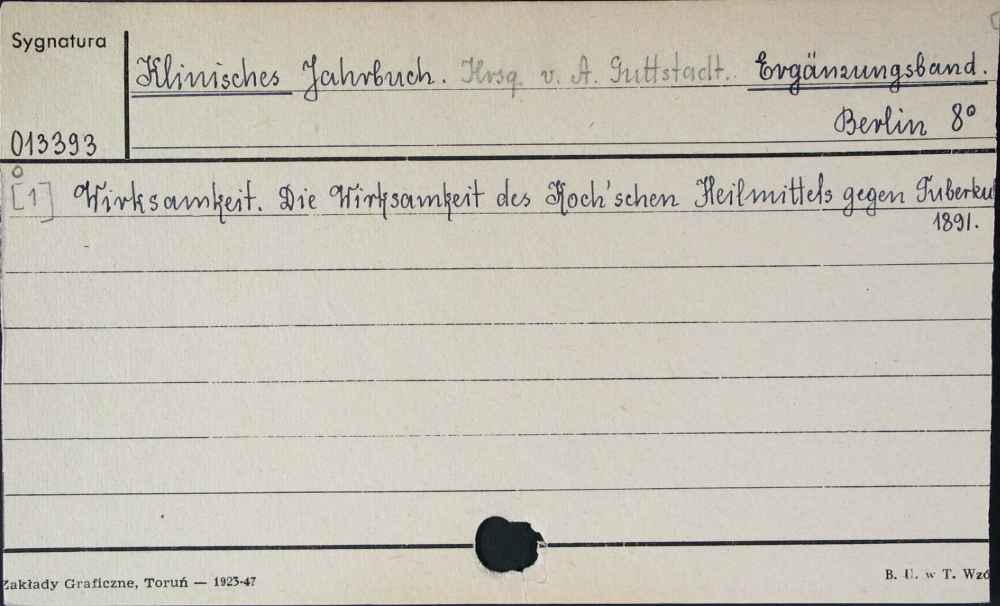 Sygnatura
Klinisches Jahrbuch. Hrsg. v. A. Guttstadt. Ergänzungsband.
Berlin 8°
013393
[1] Wirksamkeit. Die Wirksamkeit des Koch'schen Heilmittels gegen Tuberku
1891.
Zakłady Graficzne, Toruń — 1923-47
B. U. w T. Wzó